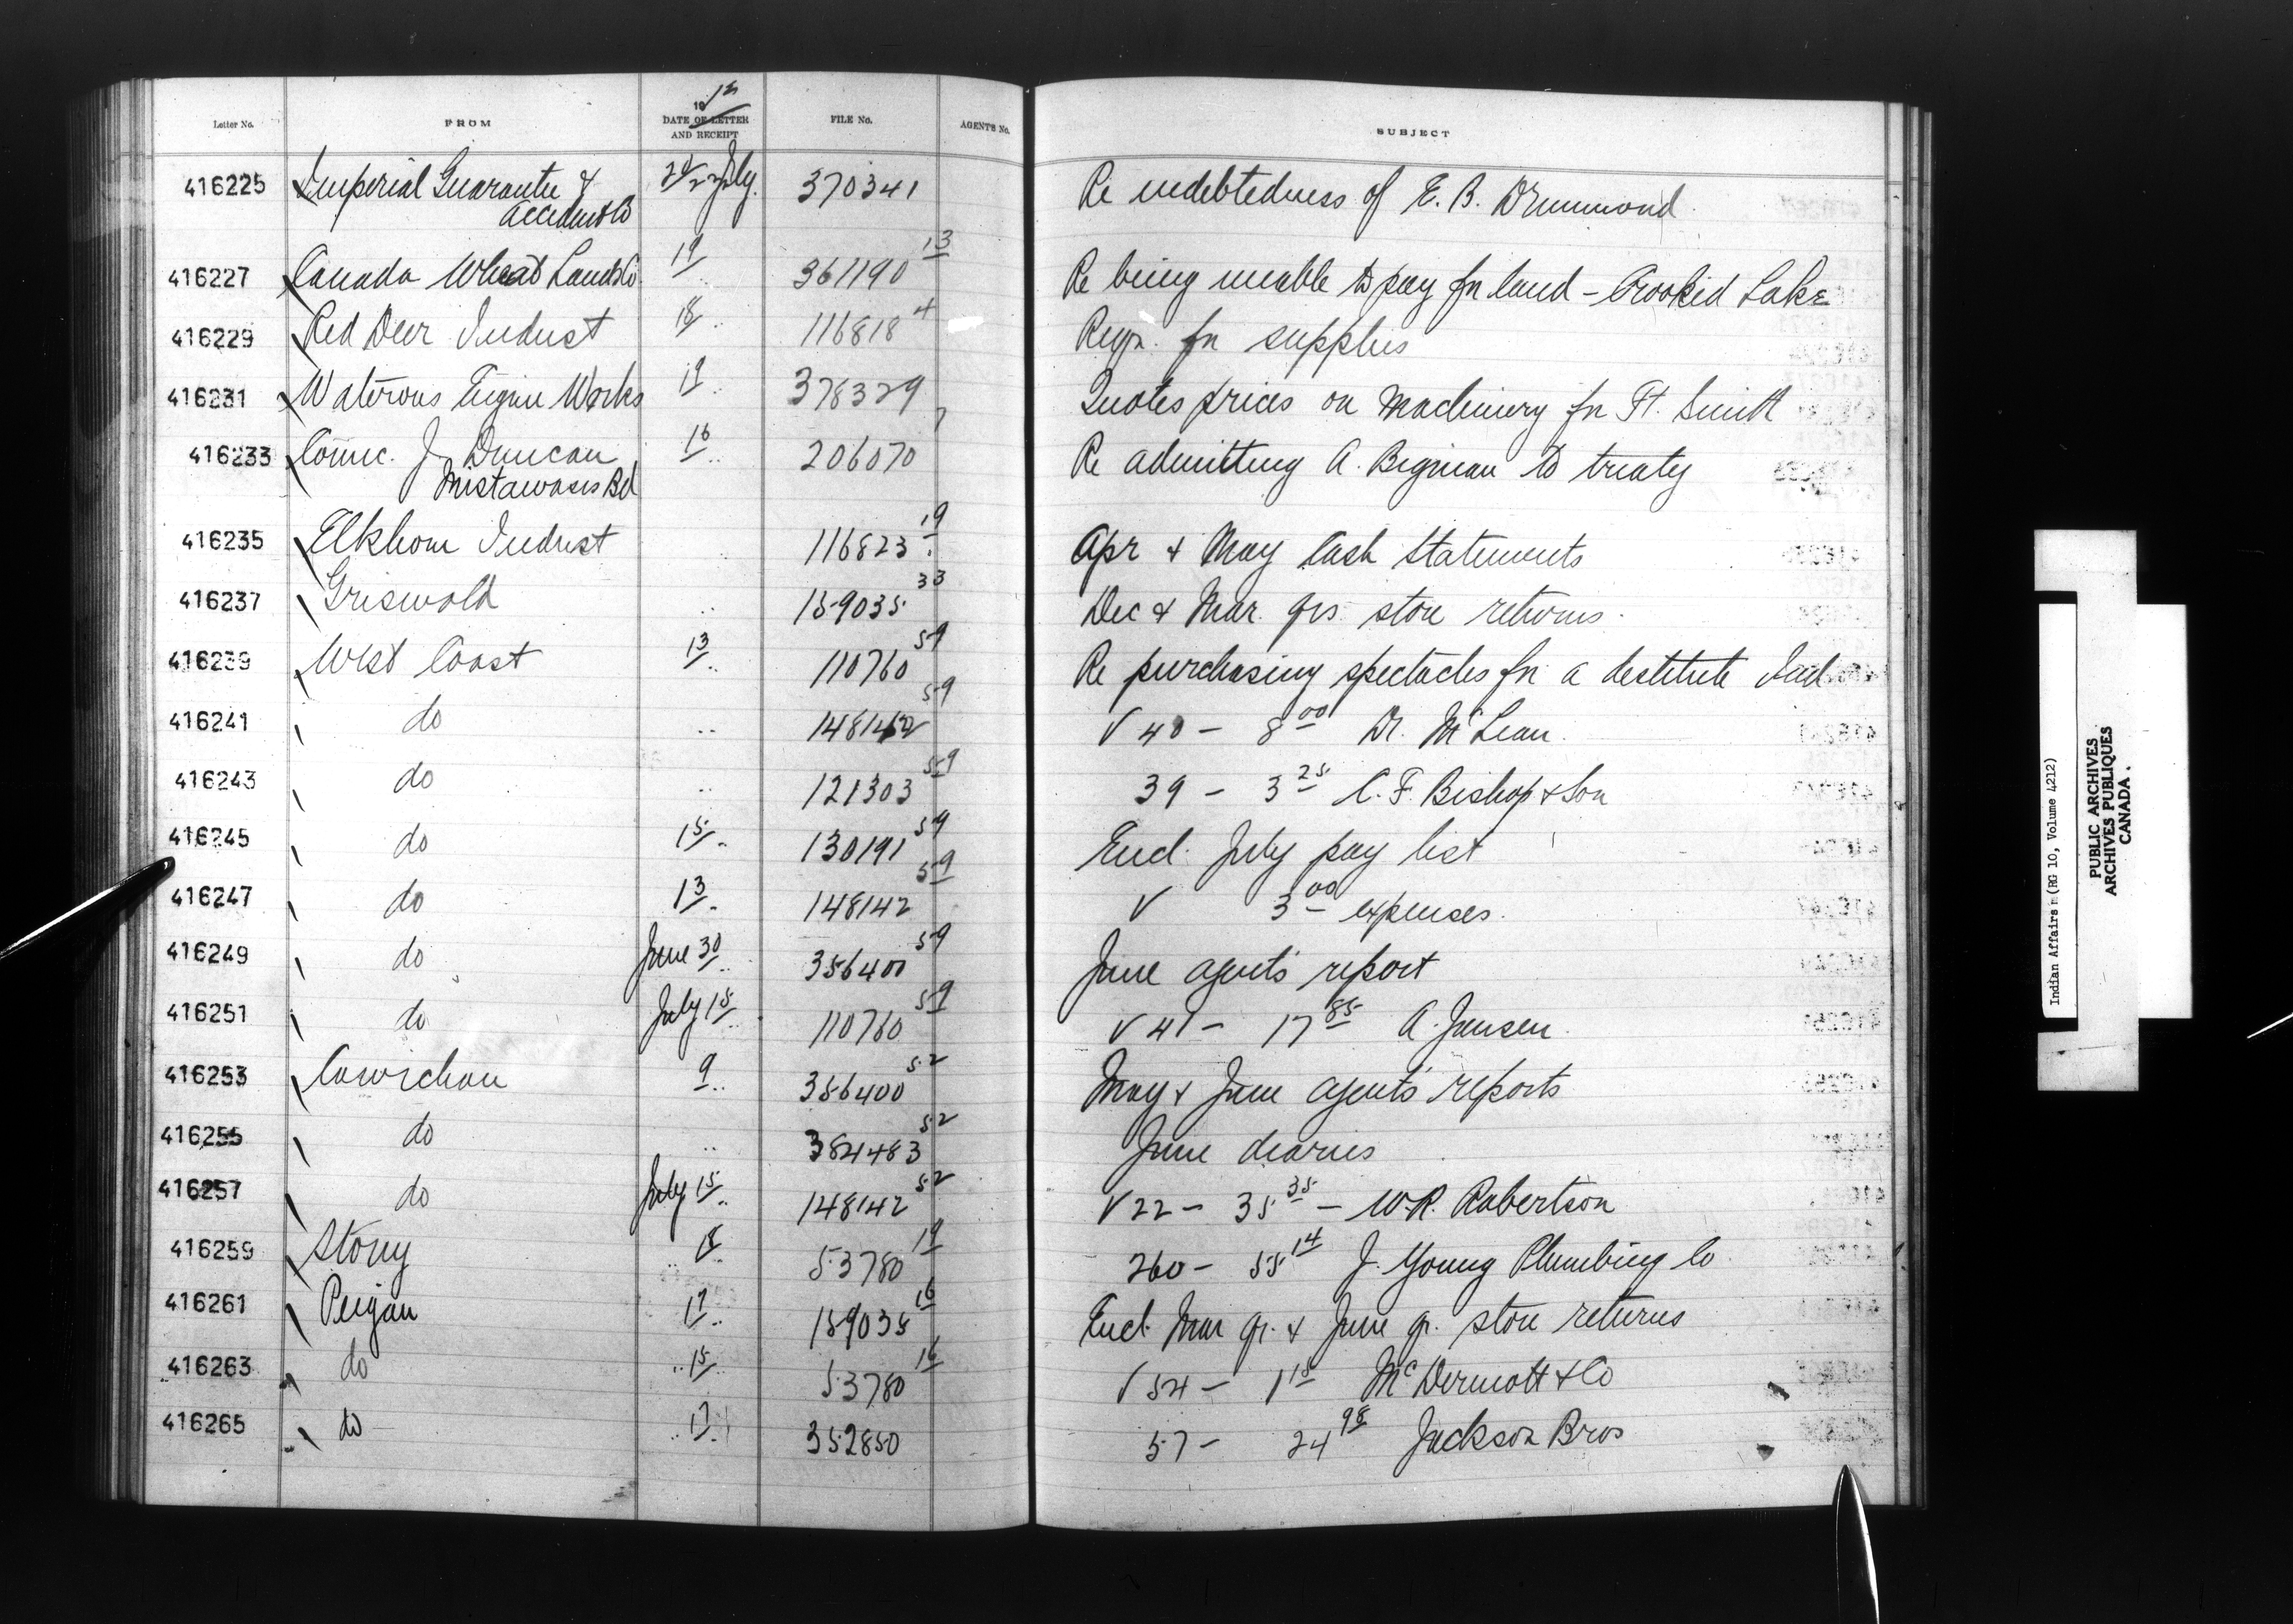 Letter No. FROM 1912 DATE OF LETTER AND RECEIPT FILE No. AGENTS No. SUBJECT
416225 Imperial Guarantee & 20/22 July. 370341 Re indebtedness of E. B. Drummond
Accident Co
416227 Canada Wheat Lands Co 19 " 361190 13 Re being unable to pay for land - Crooked Lake
416229 Red Deer Indust 18 " 116818 4 Reqn. for supplies
416231 Waterous Engine Works 19 " 378329 Quotes prices on Machinery for Ft. Smith
416233 Counc. J. Duncan 16 " 206070 7 Re admitting A. Bigman to treaty
Mistawasis Bd
416235 Elkhorn Indust " 116823 19 Apr & May Cash Statements
416237 Griswold " 159035 33 Dec & Mar. qrs store returns.
416239 West Coast 13 " 110760 59 Re purchasing spectacles for a destitute Ind
416241 do " 148142 59 V 40 - 8 00 Dr. McLean.
416243 do " 121303 59 39 - 3 25 C. F. Bishop & Son
416245 do 15 " 130191 59 Encl. July pay list
416247 do 13 " 148142 59 V 3 00 expenses.
416249 do June 30 " 356400 59 June agent's report
416251 do July 15 " 110760 59 V 41 - 17 85 A. Jensen.
416253 Cowichan 9 " 356400 52 May & June agent's reports
416255 do " 384483 52 June diaries
416257 do July 15 " 148142 52 V 22 - 35 35 - W. R. Robertson
416259 Stony " 18 53780 19 260 - 55 14 J. Young Plumbing Co
416261 Peigan 17 " 159035 16 Encl. Mar qr. & June qr. store returns
416263 do " 15 53780 16 V 54 - 1 15 McDermott & Co
416265 do " 17 " 352850 57 - 24 98 Jackson Bros
Indian Affairs (RG 10, Volume 4212)
PUBLIC ARCHIVES
ARCHIVES PUBLIQUES
CANADA.